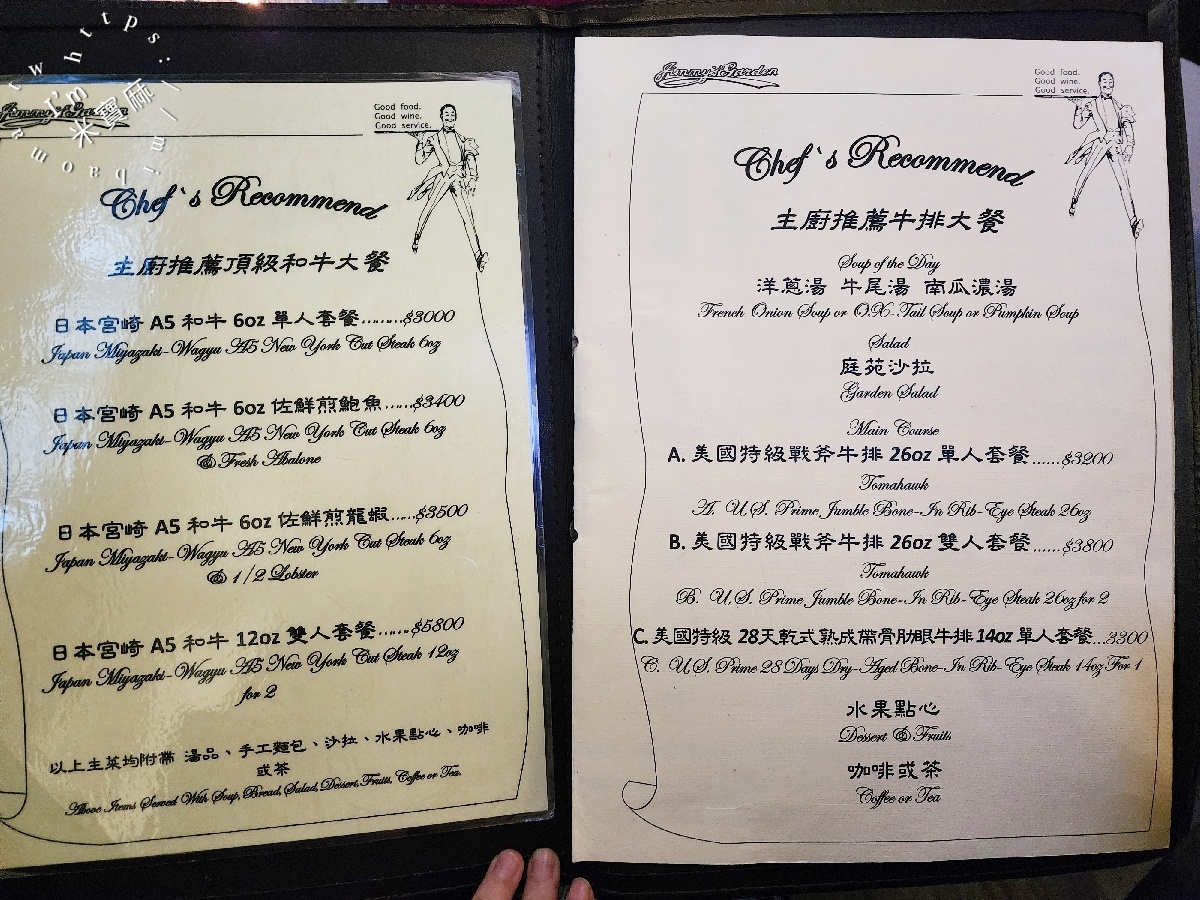 https://
I'm
米寶麻
Jimmy's Garden
Good food.
Good wine.
Good service.
Chef`s Recommend
主廚推薦頂級和牛大餐
日本宮崎 A5 和牛 6oz 單人套餐.........$3000
Japan Miyazaki-Wagyu A5 New York Cut Steak 6oz
日本宮崎 A5 和牛 6oz 佐鮮煎鮑魚......$3400
Japan Miyazaki-Wagyu A5 New York Cut Steak 6oz
& Fresh Abalone
日本宮崎 A5 和牛 6oz 佐鮮煎龍蝦......$3500
Japan Miyazaki-Wagyu A5 New York Cut Steak 6oz
& 1/2 Lobster
日本宮崎 A5 和牛 12oz 雙人套餐.......$5800
Japan Miyazaki-Wagyu A5 New York Cut Steak 12oz
for 2
以上主菜均附帶 湯品、手工麵包、沙拉、水果點心、咖啡
或茶
Above Items Served With Soup, Bread, Salad, Dessert, Fruits, Coffee or Tea.
Jimmy's Garden
Good food.
Good wine.
Good service.
Chef`s Recommend
主廚推薦牛排大餐
Soup of the Day
洋蔥湯 牛尾湯 南瓜濃湯
French Onion Soup or O.X-Tail Soup or Pumpkin Soup
Salad
庭苑沙拉
Garden Salad
Main Course
A. 美國特級戰斧牛排 26oz 單人套餐......$3200
Tomahawk
A. U.S. Prime Jumble Bone-In Rib-Eye Steak 26oz
B. 美國特級戰斧牛排 26oz 雙人套餐......$3800
Tomahawk
B. U.S. Prime Jumble Bone-In Rib-Eye Steak 26oz for 2
C. 美國特級 28天乾式熟成帶骨肋眼牛排 14oz 單人套餐...3300
C. U.S. Prime 28 Days Dry-Aged Bone-In Rib-Eye Steak 14oz For 1
水果點心
Dessert & Fruits
咖啡或茶
Coffee or Tea